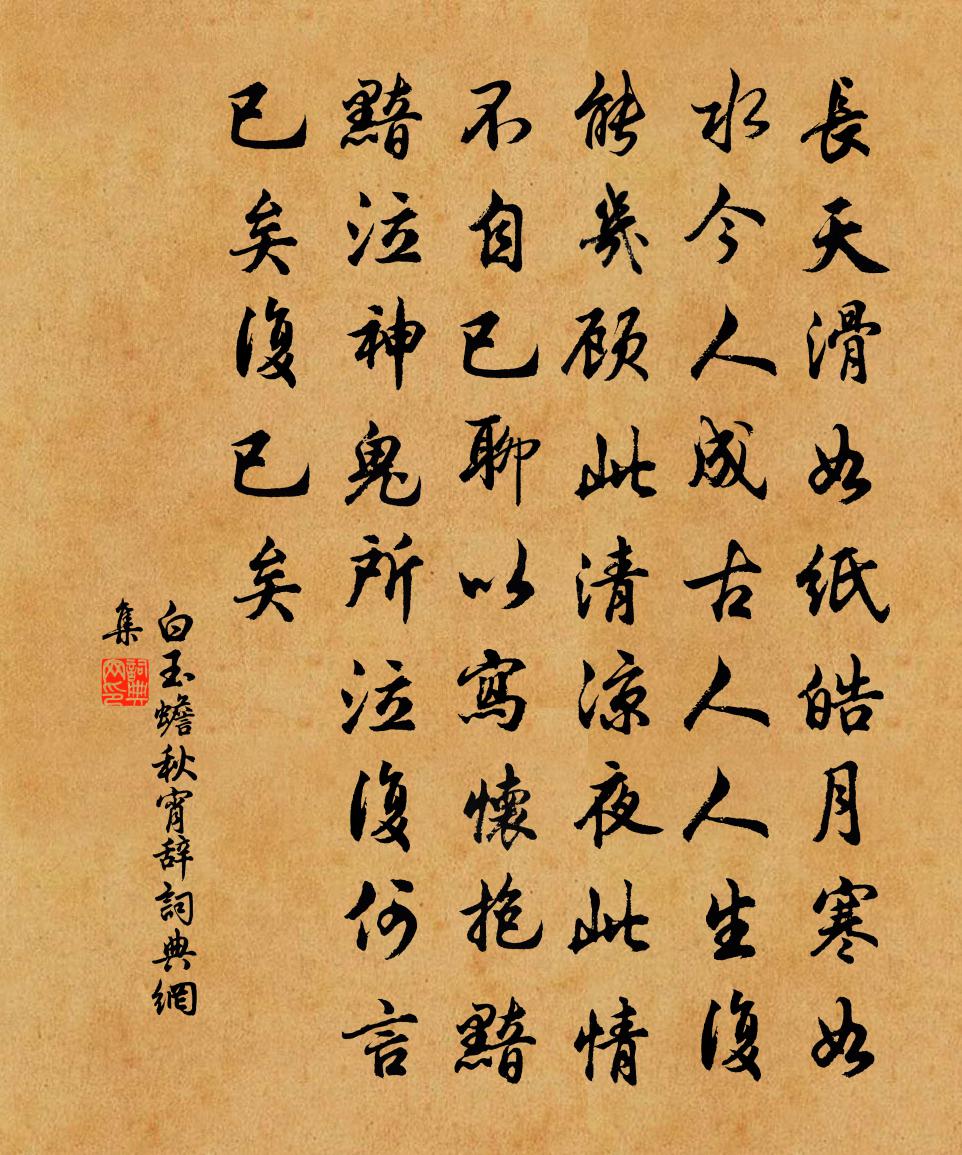 長天滑如纸皓月寒如
水今人成古人人生復
能幾顾此清涼夜此情
不自已聊以寫懷抱黯
黯泣神鬼所泣復何言
已矣復已矣
白玉蟾秋宵辞詞典網
集
詞典
网印